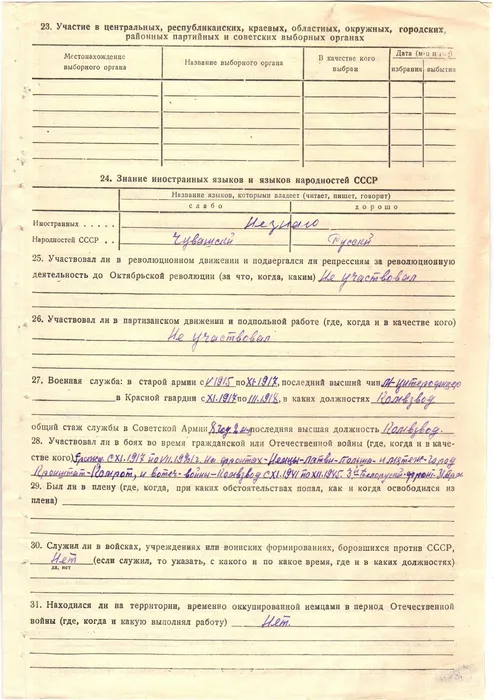 23. Участие в центральных, республиканских, краевых, областных, окружных, городских,
районных партийных и советских выборных органах
Местонахождение выборного органа
Название выборного органа
В качестве кого выбран
Дата
избрания
выбытия
24. Знание иностранных языков и языков народностей СССР
Название языков, которыми владеет (читает, пишет, говорит)
слабо хорошо
Иностранных . . . . . Незнаю
Народностей СССР . . Чувашский Русский
25. Участвовал ли в революционном движении и подвергался ли репрессиям за революционную
деятельность до Октябрьской революции (за что, когда, каким) Не участвовал
26. Участвовал ли в партизанском движении и подпольной работе (где, когда и в качестве кого)
Не участвовал
27. Военная служба: в старой армии с V 1915 по XI-1917, последний высший чин
в Красной гвардии с XI.1917 по III.1918, в каких должностях Комвзвод
общий стаж службы в Советской Армии последняя высшая должность Комвзвод.
28. Участвовал ли в боях во время гражданской или Отечественной войны (где, когда и в каче-
стве кого) на фронтах-
Кронштат-Комрот, и войны-Комвзвод с XI.1941 по XII.1945.
29. Был ли в плену (где, когда, при каких обстоятельствах попал, как и когда освободился из
плена)
30. Служил ли в войсках, учреждениях или воинских формированиях, боровшихся против СССР,
Нет (если служил, то указать, с какого и по какое время, где и в каких должностях)
да, нет
31. Находился ли на территории, временно оккупированной немцами в период Отечественной
войны (где, когда и какую выполнял работу) Нет.